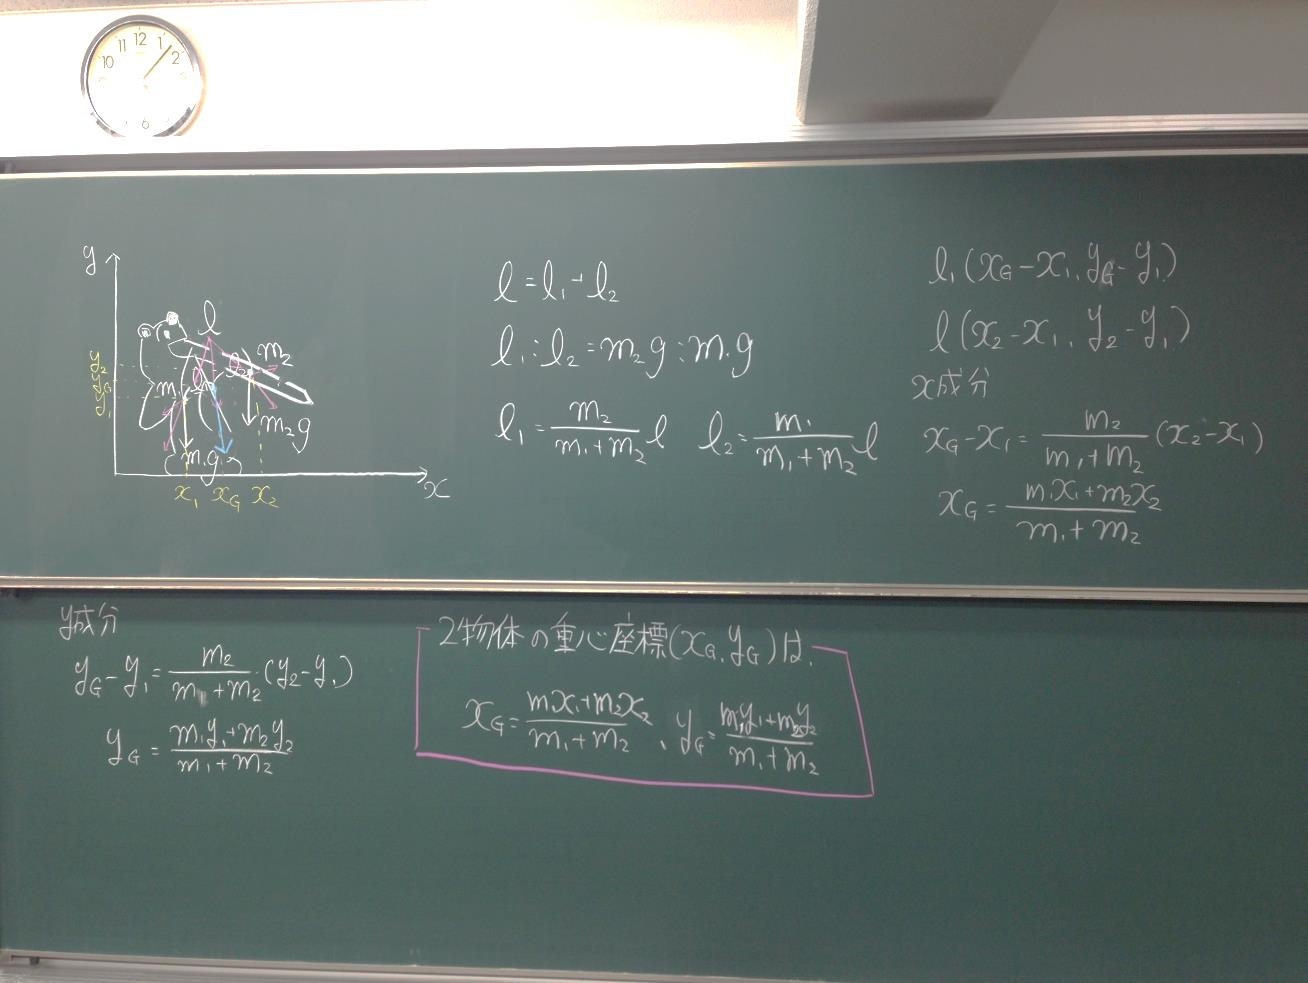 10 11 12 1 2
6
y
l
m₂
y₂
y_G
y₁
m₂g
m₁g
x₁ x_G x₂
x
l = l₁ + l₂
l₁ : l₂ = m₂g : m₁g
l₁ = m₂/(m₁+m₂) l l₂ = m₁/(m₁+m₂) l
l₁(x_G−x₁, y_G−y₁)
l(x₂−x₁, y₂−y₁)
x成分
x_G−x₁ = m₂/(m₁+m₂) (x₂−x₁)
x_G = (m₁x₁+m₂x₂)/(m₁+m₂)
y成分
y_G−y₁ = m₂/(m₁+m₂)・(y₂−y₁)
y_G = (m₁y₁+m₂y₂)/(m₁+m₂)
2物体の重心座標(x_G, y_G)は、
x_G = (m₁x₁+m₂x₂)/(m₁+m₂)、y_G = (m₁y₁+m₂y₂)/(m₁+m₂)